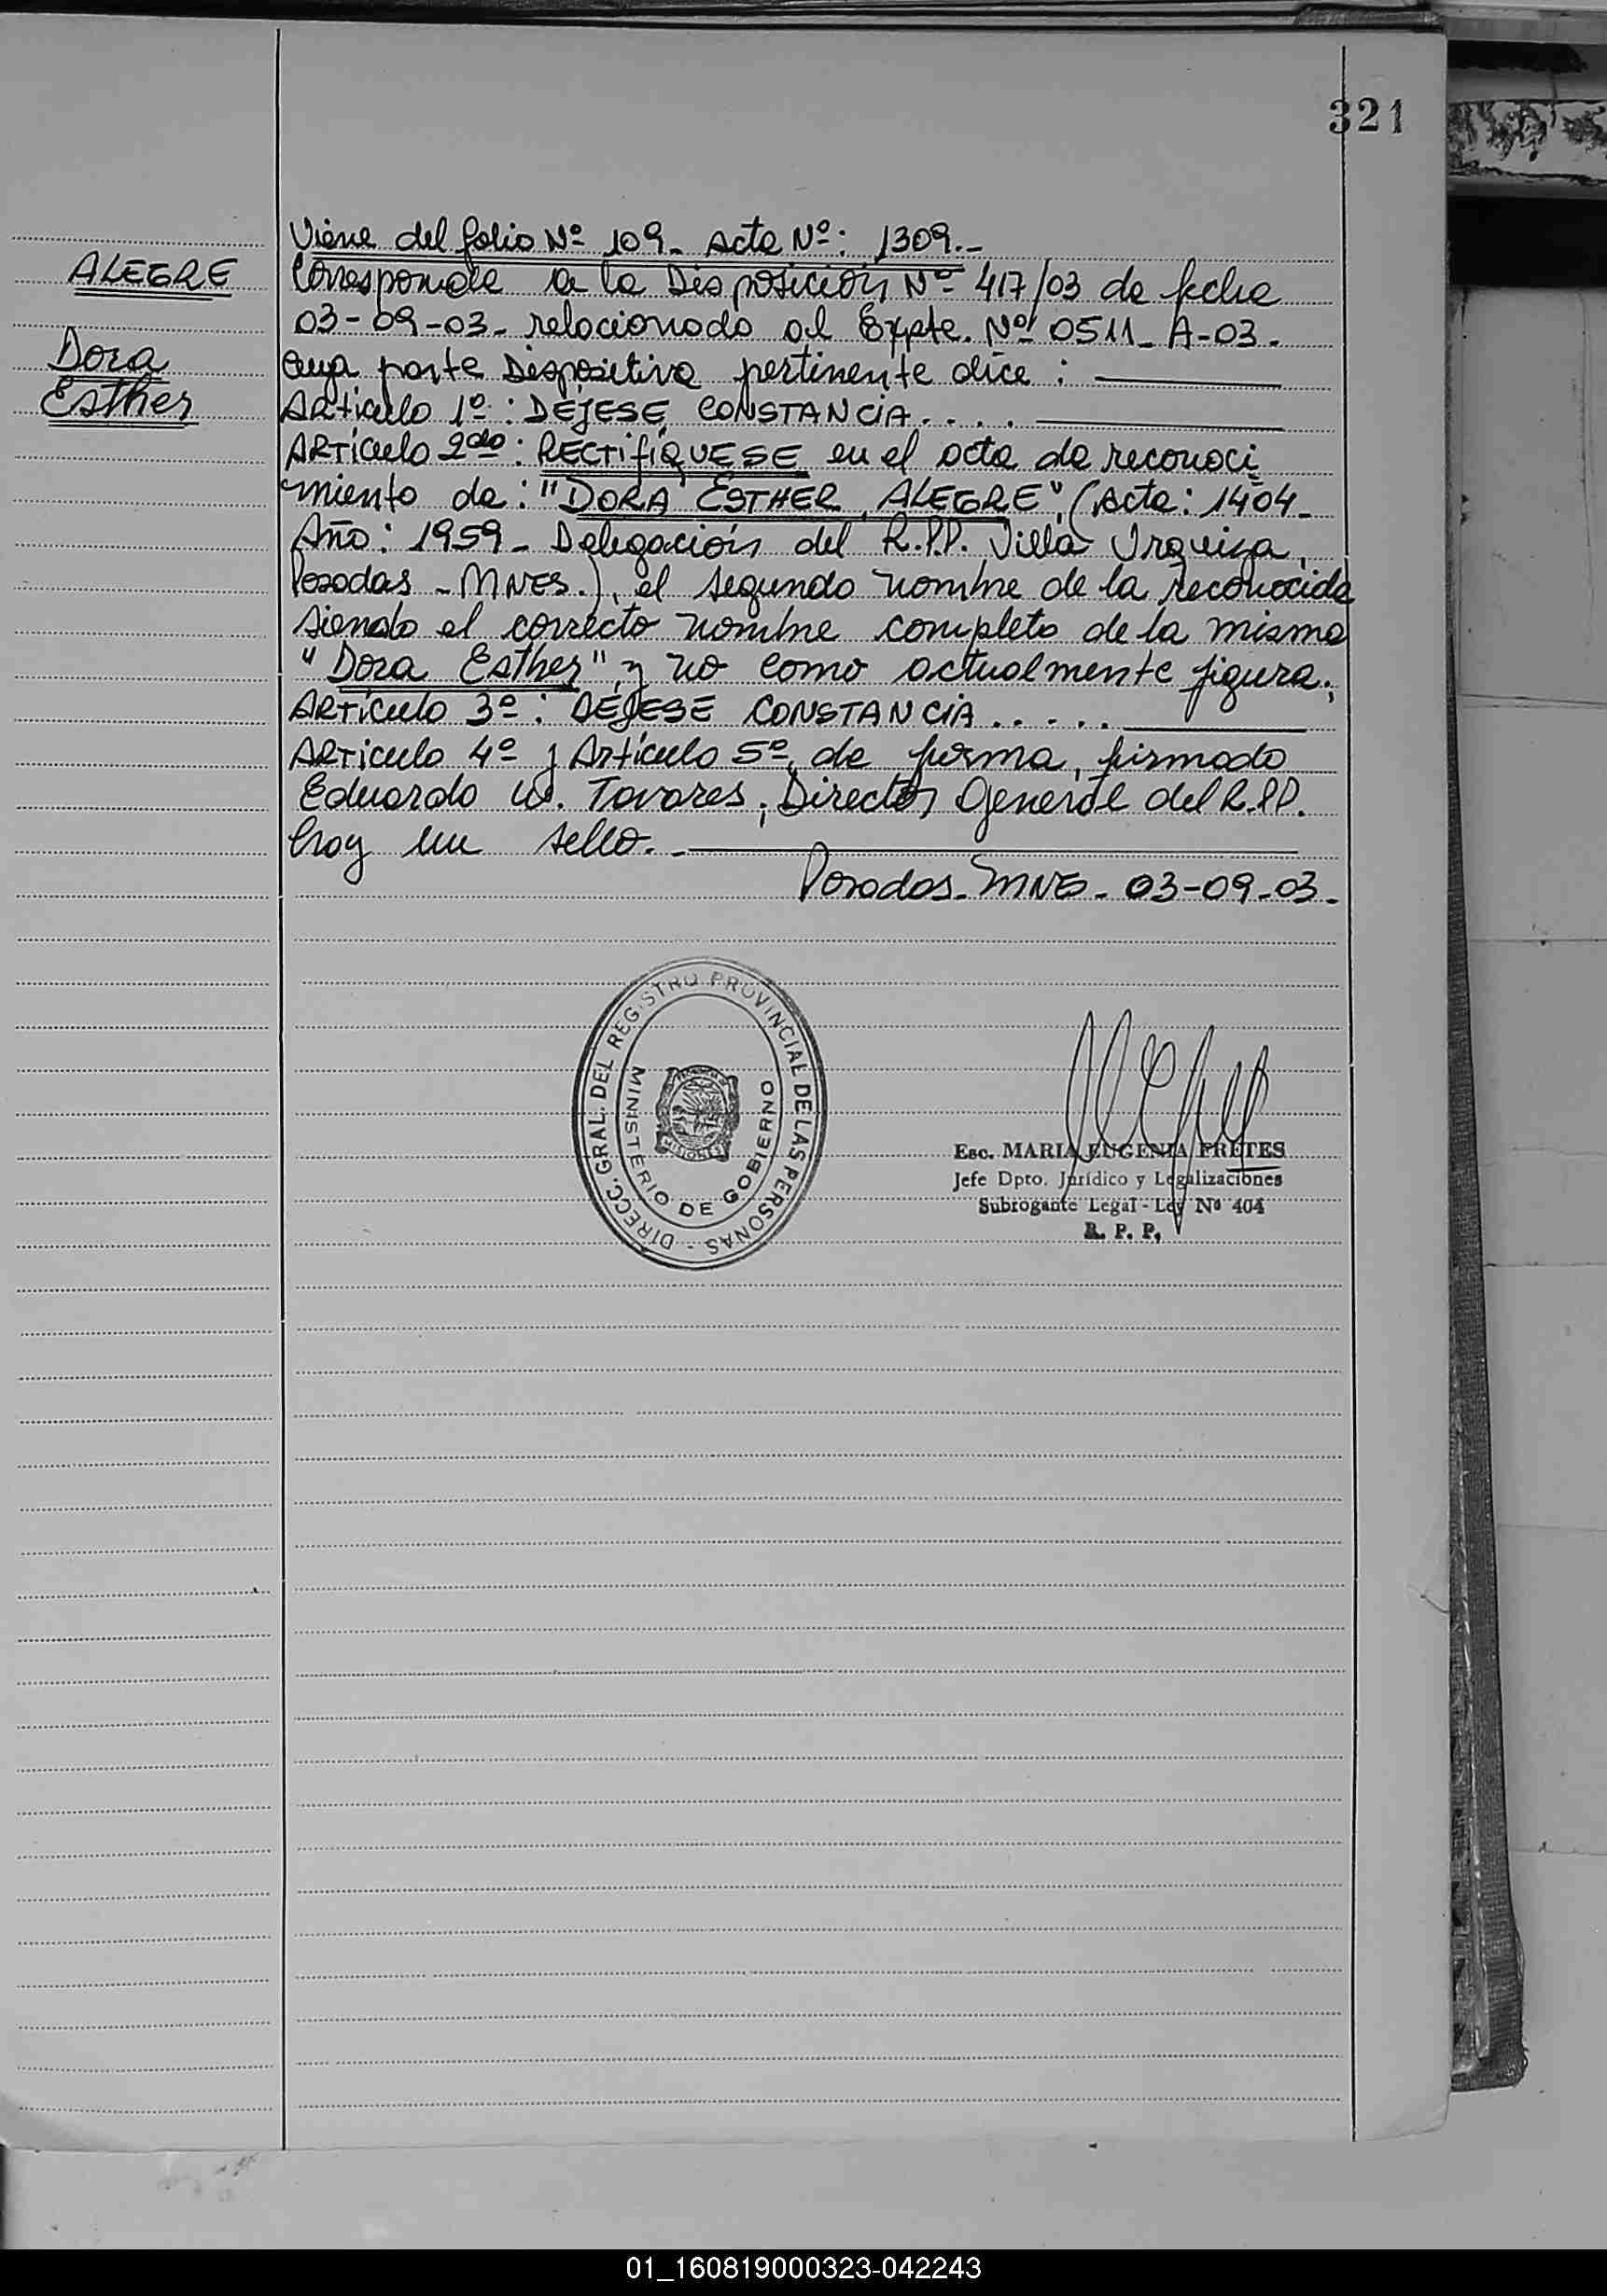 321
ALEGRE
Dora
Esther
Viene del folio Nº 109_ Acta Nº: 1309._
Corresponde a la Disposición Nº 417/03 de fecha
03-09-03_ relacionado al Expte. Nº 0511_ A-03.
Cuya parte Dispositiva pertinente dice :
Artículo 1º : DÉJESE CONSTANCIA . . . .
Artículo 2do : RECTIFÍQUESE en el acta de reconoci
miento de : "DORA ESTHER ALEGRE", (Acta: 1404_
Año: 1959_ Delegación del R.P.P. Villa Urquiza,
Posadas - MNES.), el segundo nombre de la reconocida
siendo el correcto nombre completo de la misma
"Dora Esther" y no como actualmente figura.;
Artículo 3º : DÉJESE CONSTANCIA . . . . .
Artículo 4º y Artículo 5º, de forma, firmado
Eduardo W. Tavares, Director General del R.P.P.
hay un sello._
Posadas_ MNES_ 03-09-03.
DIRECC. GRAL. DEL REGISTRO PROVINCIAL DE LAS PERSONAS -
MINISTERIO DE GOBIERNO
MISIONES
Esc. MARIA EUGENIA FRETES
Jefe Dpto. Jurídico y Legalizaciones
Subrogante Legal - Ley Nº 404
R. P. P.
01_160819000323-042243